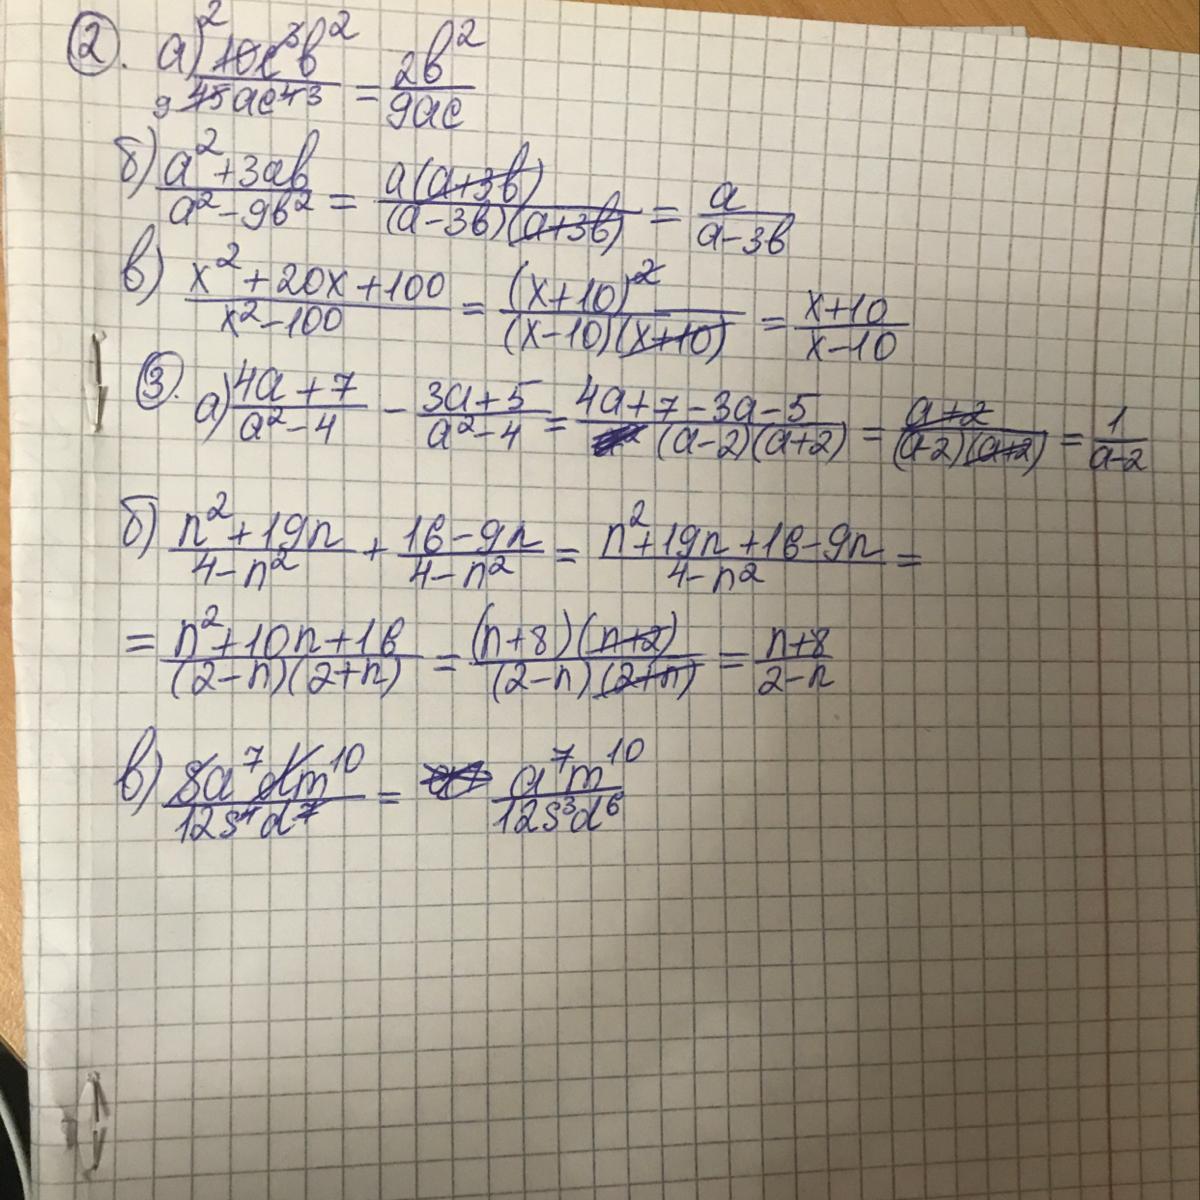 2. а) 10c³b²/45ac⁴ = 2b²/9ac
б) a²+3ab/a²-9b² = a(a+3b)/(a-3b)(a+3b) = a/a-3b
в) x²+20x+100/x²-100 = (x+10)²/(x-10)(x+10) = x+10/x-10
3. а) 4a+7/a²-4 - 3a+5/a²-4 = 4a+7-3a-5/(a-2)(a+2) = a+2/(a-2)(a+2) = 1/a-2
б) n²+19n/4-n² + 16-9n/4-n² = n²+19n+16-9n/4-n² =
= n²+10n+16/(2-n)(2+n) = (n+8)(n+2)/(2-n)(2+n) = n+8/2-n
в) a⁷dm¹⁰/12s⁴d⁷ = a⁷m¹⁰/12s³d⁶